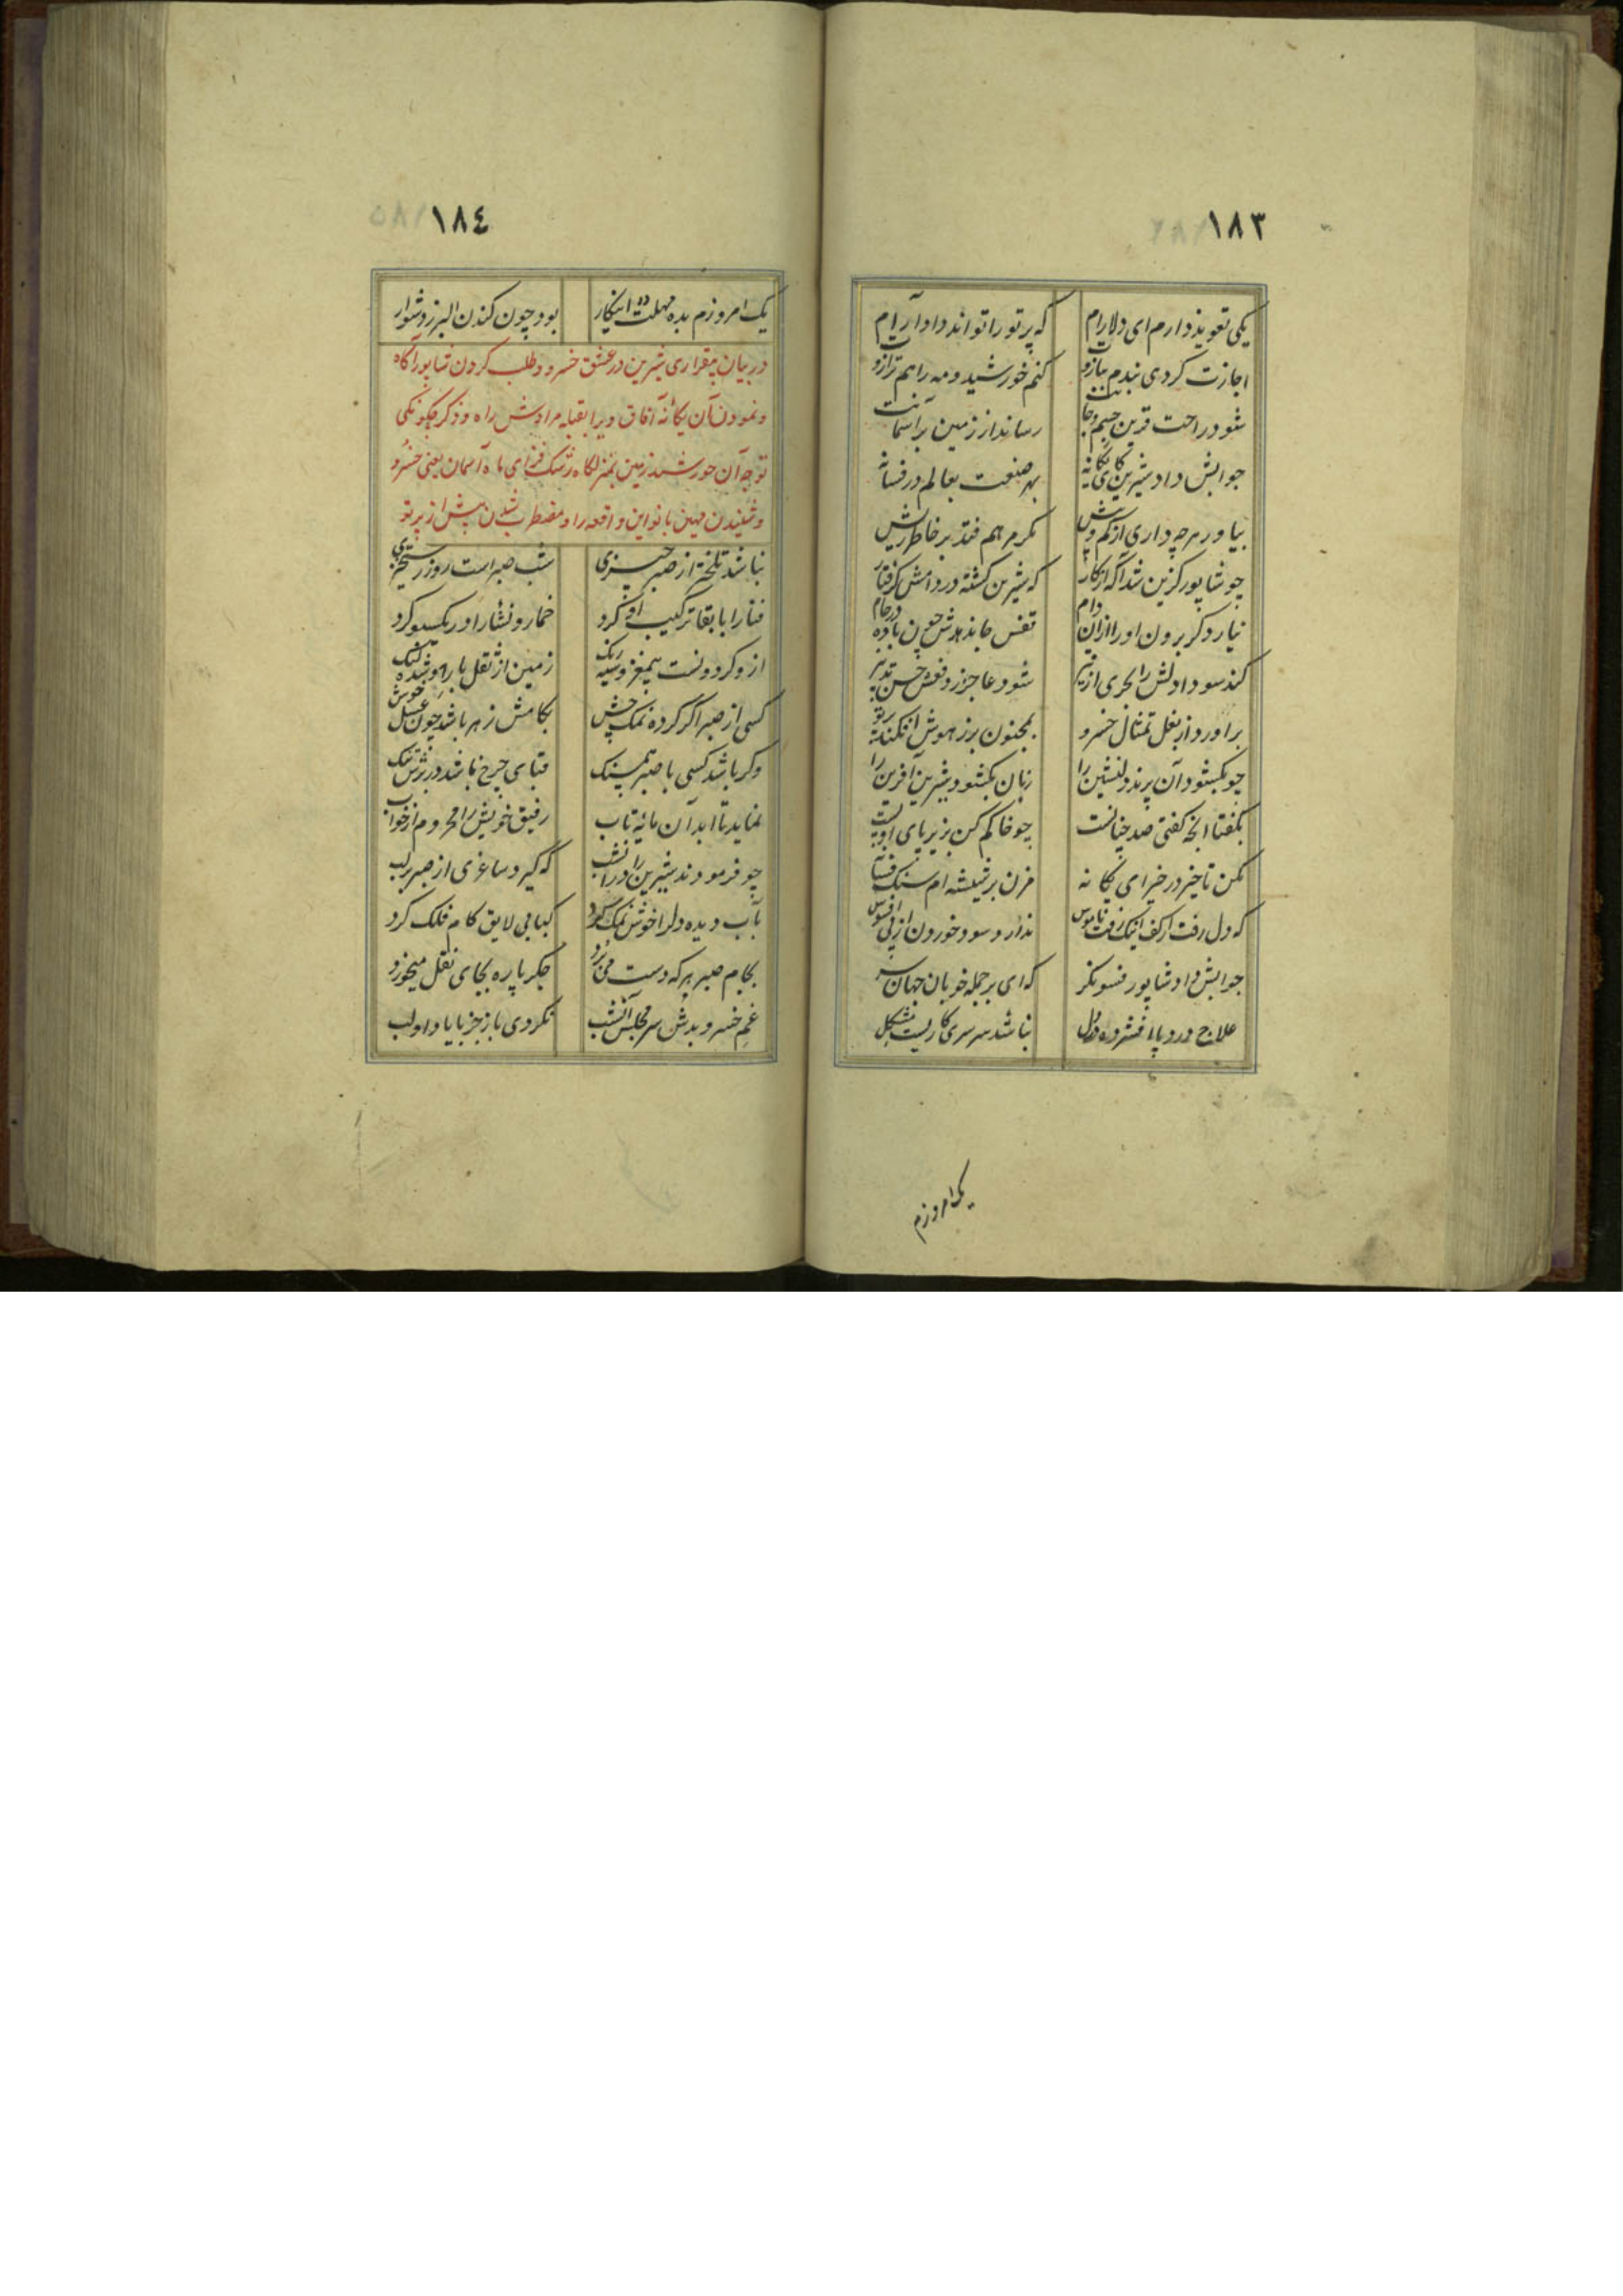 ١٨٣
یکی تعویذ دارم ای دلارام که پرتو را تواند داد آرام
اجازت کردی بندم ببازوت کنم خورشید و مه را هم ترازوت
شود راحت قرین جسم و جانت رساند از زمین بر آسمانت
جوابش داد شیرین کای یگانه بهر صنعت بعالم در فسانه
بیاور هرچه داری از کم و بیش مگر مرهم فتد بر خاطر ریش
چو شاپور گزین شد آگه از کار که شیرین گشته در دامش گرفتار
نیارد کرد برون او را از آن دام نفس چون باده در جام
کند سودا دلش را شود عاجز حسن تدبیر
براورد از بغل تمثال خسرو بمجنون برز هوش افکند پرتو
چو بگشود آن پرند دلنشین را زبان بگشود شیرین آفرین را
بگفتا آنچه گفتی صد چنانست چو خاکم کن بزیر پای
مکن تاخیر در خیر ای یگانه مزن بر شیشه ام سنگ
که دل رفت از کف اینک رفت ناموس ندارد سود خوردن از پی افسوس
جوابش داد شاپور فسونگر که ای بر جمله خوبان جهان سر
علاج درد پا افشرده در دل نباشد سرسری کاریست مشکل
یک امروزم
١٨٤
یک امروزم بده مهلت در اینکار بود چون کندن البرز دشوار
در بیان بیقراری شیرین در عشق خسرو و طلب کردن شاپور آگاه
و نمودن آن یگانه آفاق ویرا بقبله مرادش راه و ذکر چگونگی
توجه آن خورشید زمین بمنزلگاه رشک فزای ماه آسمان یعنی خسرو
و شنیدن مهین بانو این واقعه را و مضطرب شدن بیش از پرتو
نباشد تلختر از صبر چیزی شب صبر است روز رستخیزی
فنا را با بقا ترکیب او کرد خمار و نشار او ریکسو کرد
ازو گردونست بیمغز و سیه رنگ زمین از ثقل بار او شده لنگ
کسی از صبر اگر کرده نمک چش بکامش زهر باشد چون عسل خوش
وگر باشد کسی با صبر همسنگ قبای چرخ باشد در برش تنگ
نماید تا ابد آن مایه تاب رفیق خویش را محروم از خواب
چو فرمودند شیرین را در آنشب که گیرد ساغری از صبر بر لب
بآب دیده دلرا خوش نمک کرد کبابی لایق کام فلک کرد
بجام صبر هر که دست می برد جگر پاره بجای نقل میخورد
غم خسرو بدش سر مجلس آنشب نکردی باز جز با یاد او لب